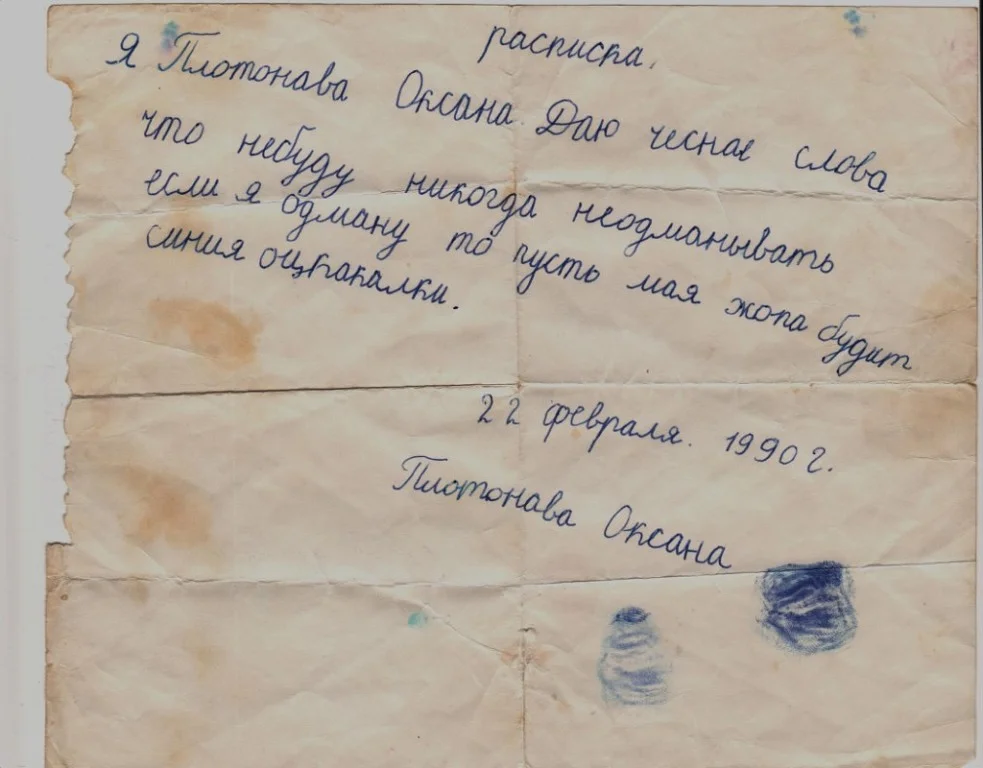 расписка.
Я Плотонава Оксана. Даю чеснае слова
что небуду никогда неодманывать
если я одману то пусть мая жопа будит
синия оцкакалки.
22 февраля. 1990 г.
Плотонава Оксана